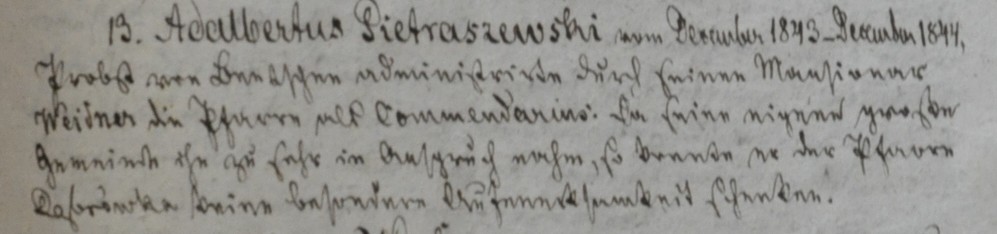 13. Adalbertus Pietraszewski vom December 1843 - December 1844,
Probst von Bentschen administrirte durch seinen Mansionar
Weidner die Pfarre als Commendarius. Da seine eigene große
Gemeinde ihn zu sehr in Anspruch nahm, so konnte er der Pfarre
Dąbrówka keine besondere Aufmerksamkeit schenken.